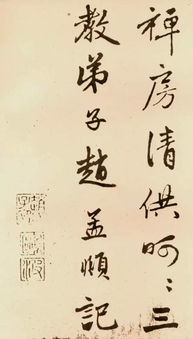 禅房清供呵〻三
教弟子趙孟頫記